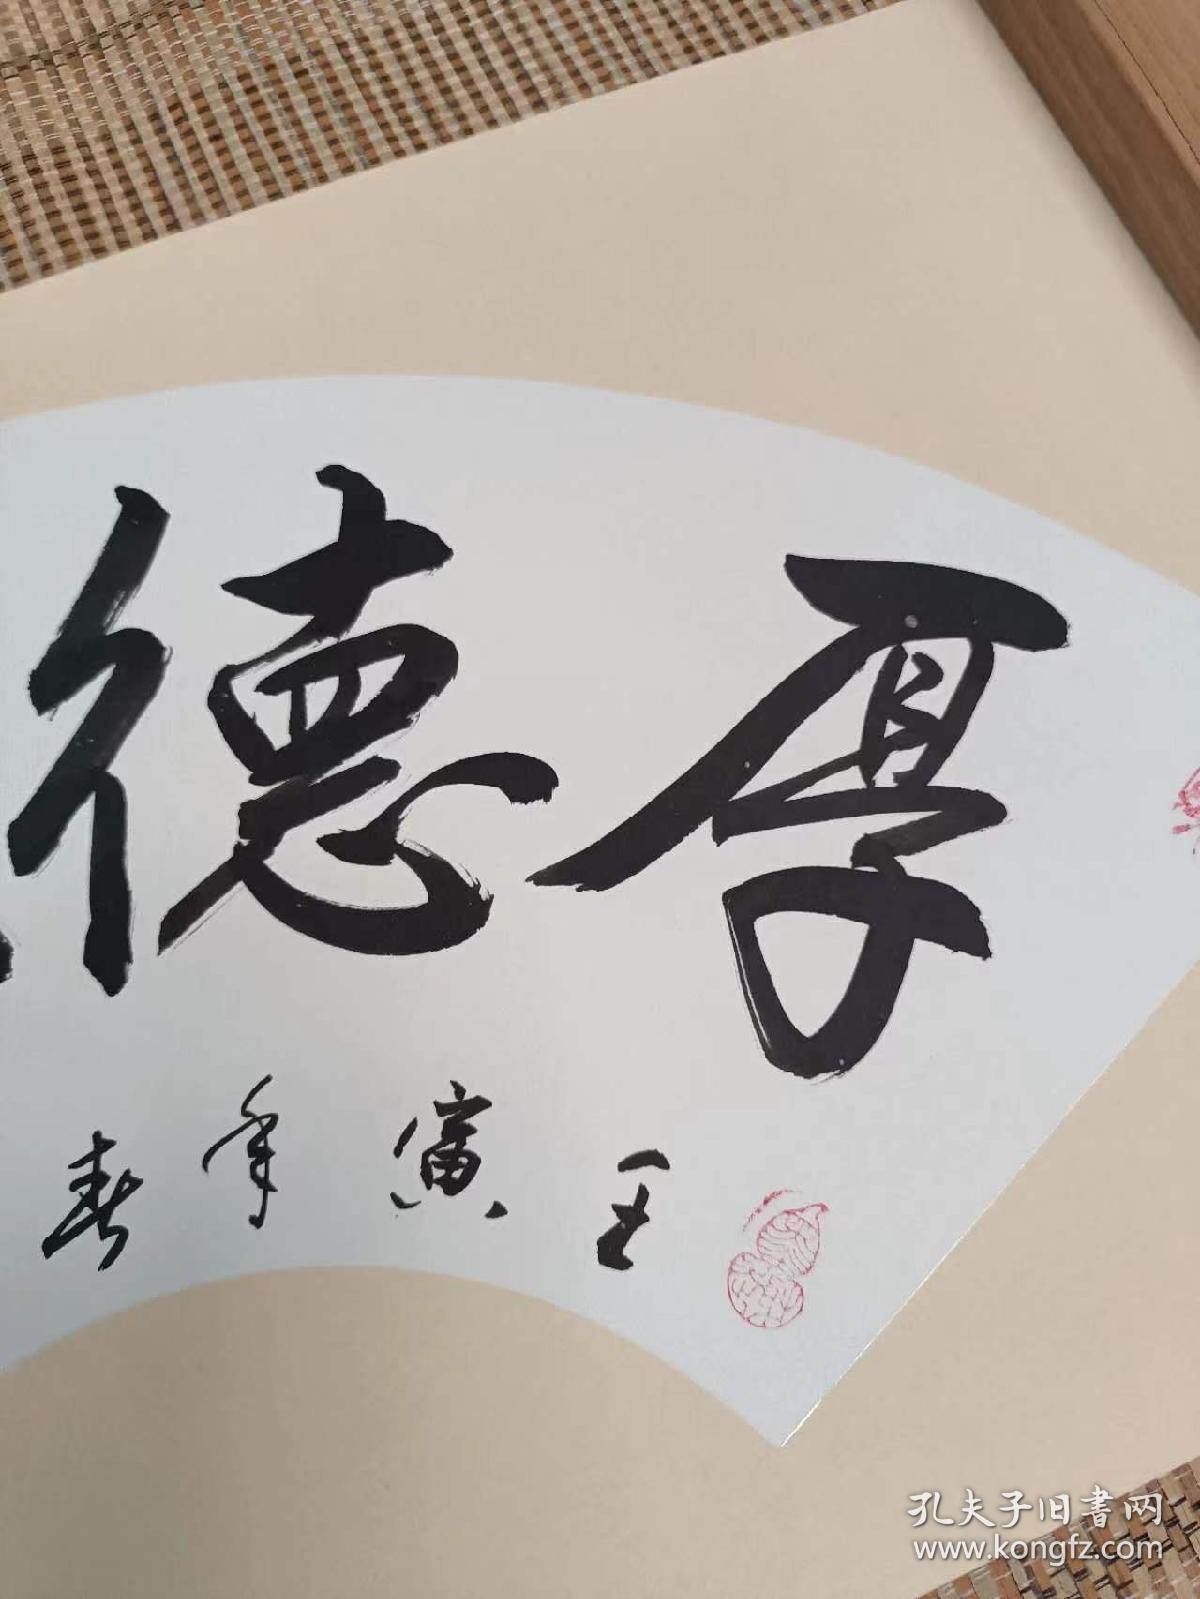 厚德
壬寅年春
孔夫子旧书网
www.kongfz.com